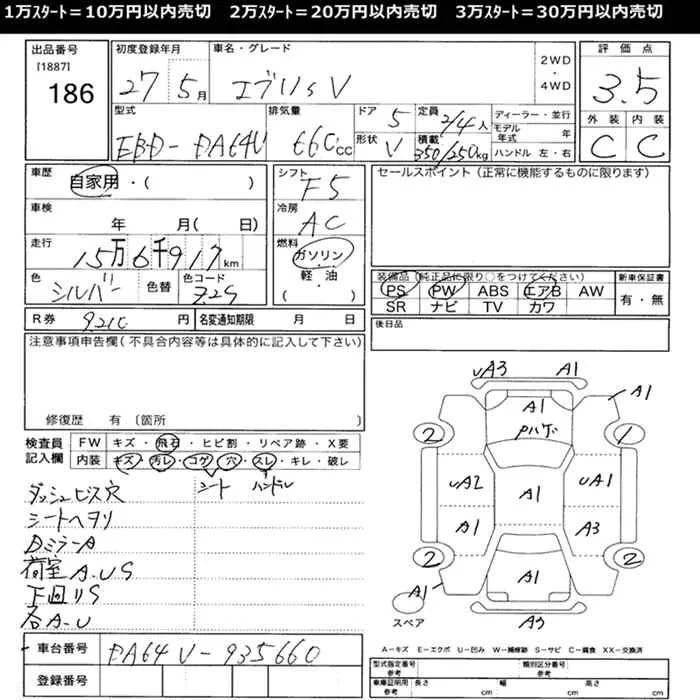 1万ｽﾀｰﾄ＝10万円以内売切　2万ｽﾀｰﾄ＝20万円以内売切　3万ｽﾀｰﾄ＝30万円以内売切
出品番号
[1887]
186
初度登録年月
27 5月
車名・グレード
エブリィ V
2WD
・
4WD
評価点
3.5
外装 内装
C C
型式
EBD-DA64V
排気量
660cc
ドア 5
形状 V
定員 2/4人
積載 350/250kg
ディーラー・並行
モデル年式 年
ハンドル 左・右
車歴
自家用・( )
シフト
F5
セールスポイント（正常に機能するものに限ります）
車検
年 月( 日)
冷房
AC
走行
15万6千917km
燃料
ガソリン
軽・油
( )
色
シルバー
色替
色コード
Z2S
装備品（純正品に限り○をつけてください）
PS PW ABS エアB AW
SR ナビ TV カワ
新車保証書
有・無
R券 9210 円
名変通知期限 月 日
後日品
注意事項申告欄(不具合内容等は具体的に記入して下さい)
修復歴 有 〔箇所 〕
検査員記入欄
FW キズ・飛石・ヒビ割・リペア跡・X要
内装 キズ・汚レ・コゲ・穴・スレ・キレ・破レ
シート ハンドル
ダッシュビス穴
シートヘタリ
DミラーA
荷室A.US
下回リS
各A-U
uA3 A1
A1
A1
Pハゲ
2 1
uA2 A1 uA1
A1 A3
2 2
A1 A1
スペア
A3
車台番号 DA64V-935660
登録番号
A－キズ E－エクボ U－凹み W－補修跡 S－サビ C－腐食 XX－交換済
型式指定番号 類別区分番号
参考 参考
車庫証明用 長さ 幅 高さ
参考 cm cm cm